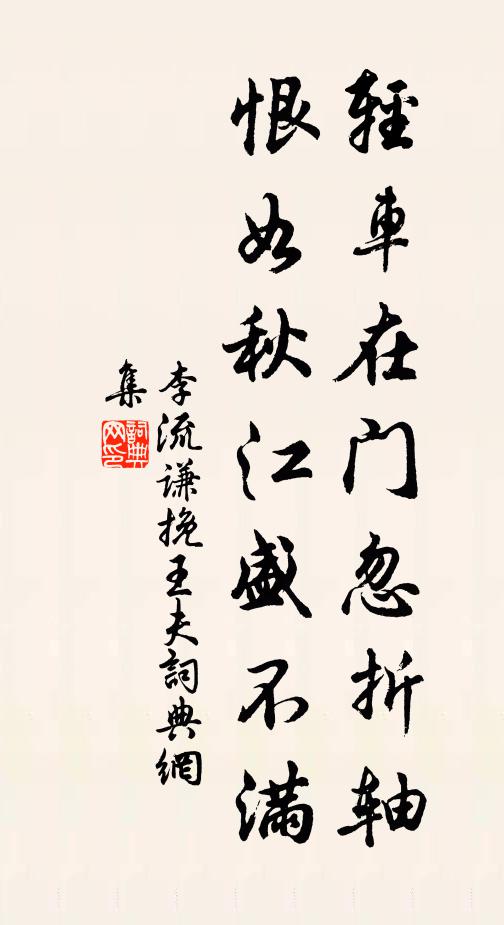 輕車在門忽折軸
恨如秋江盛不滿
李流謙挽王夫詞典網
集
詞典网印